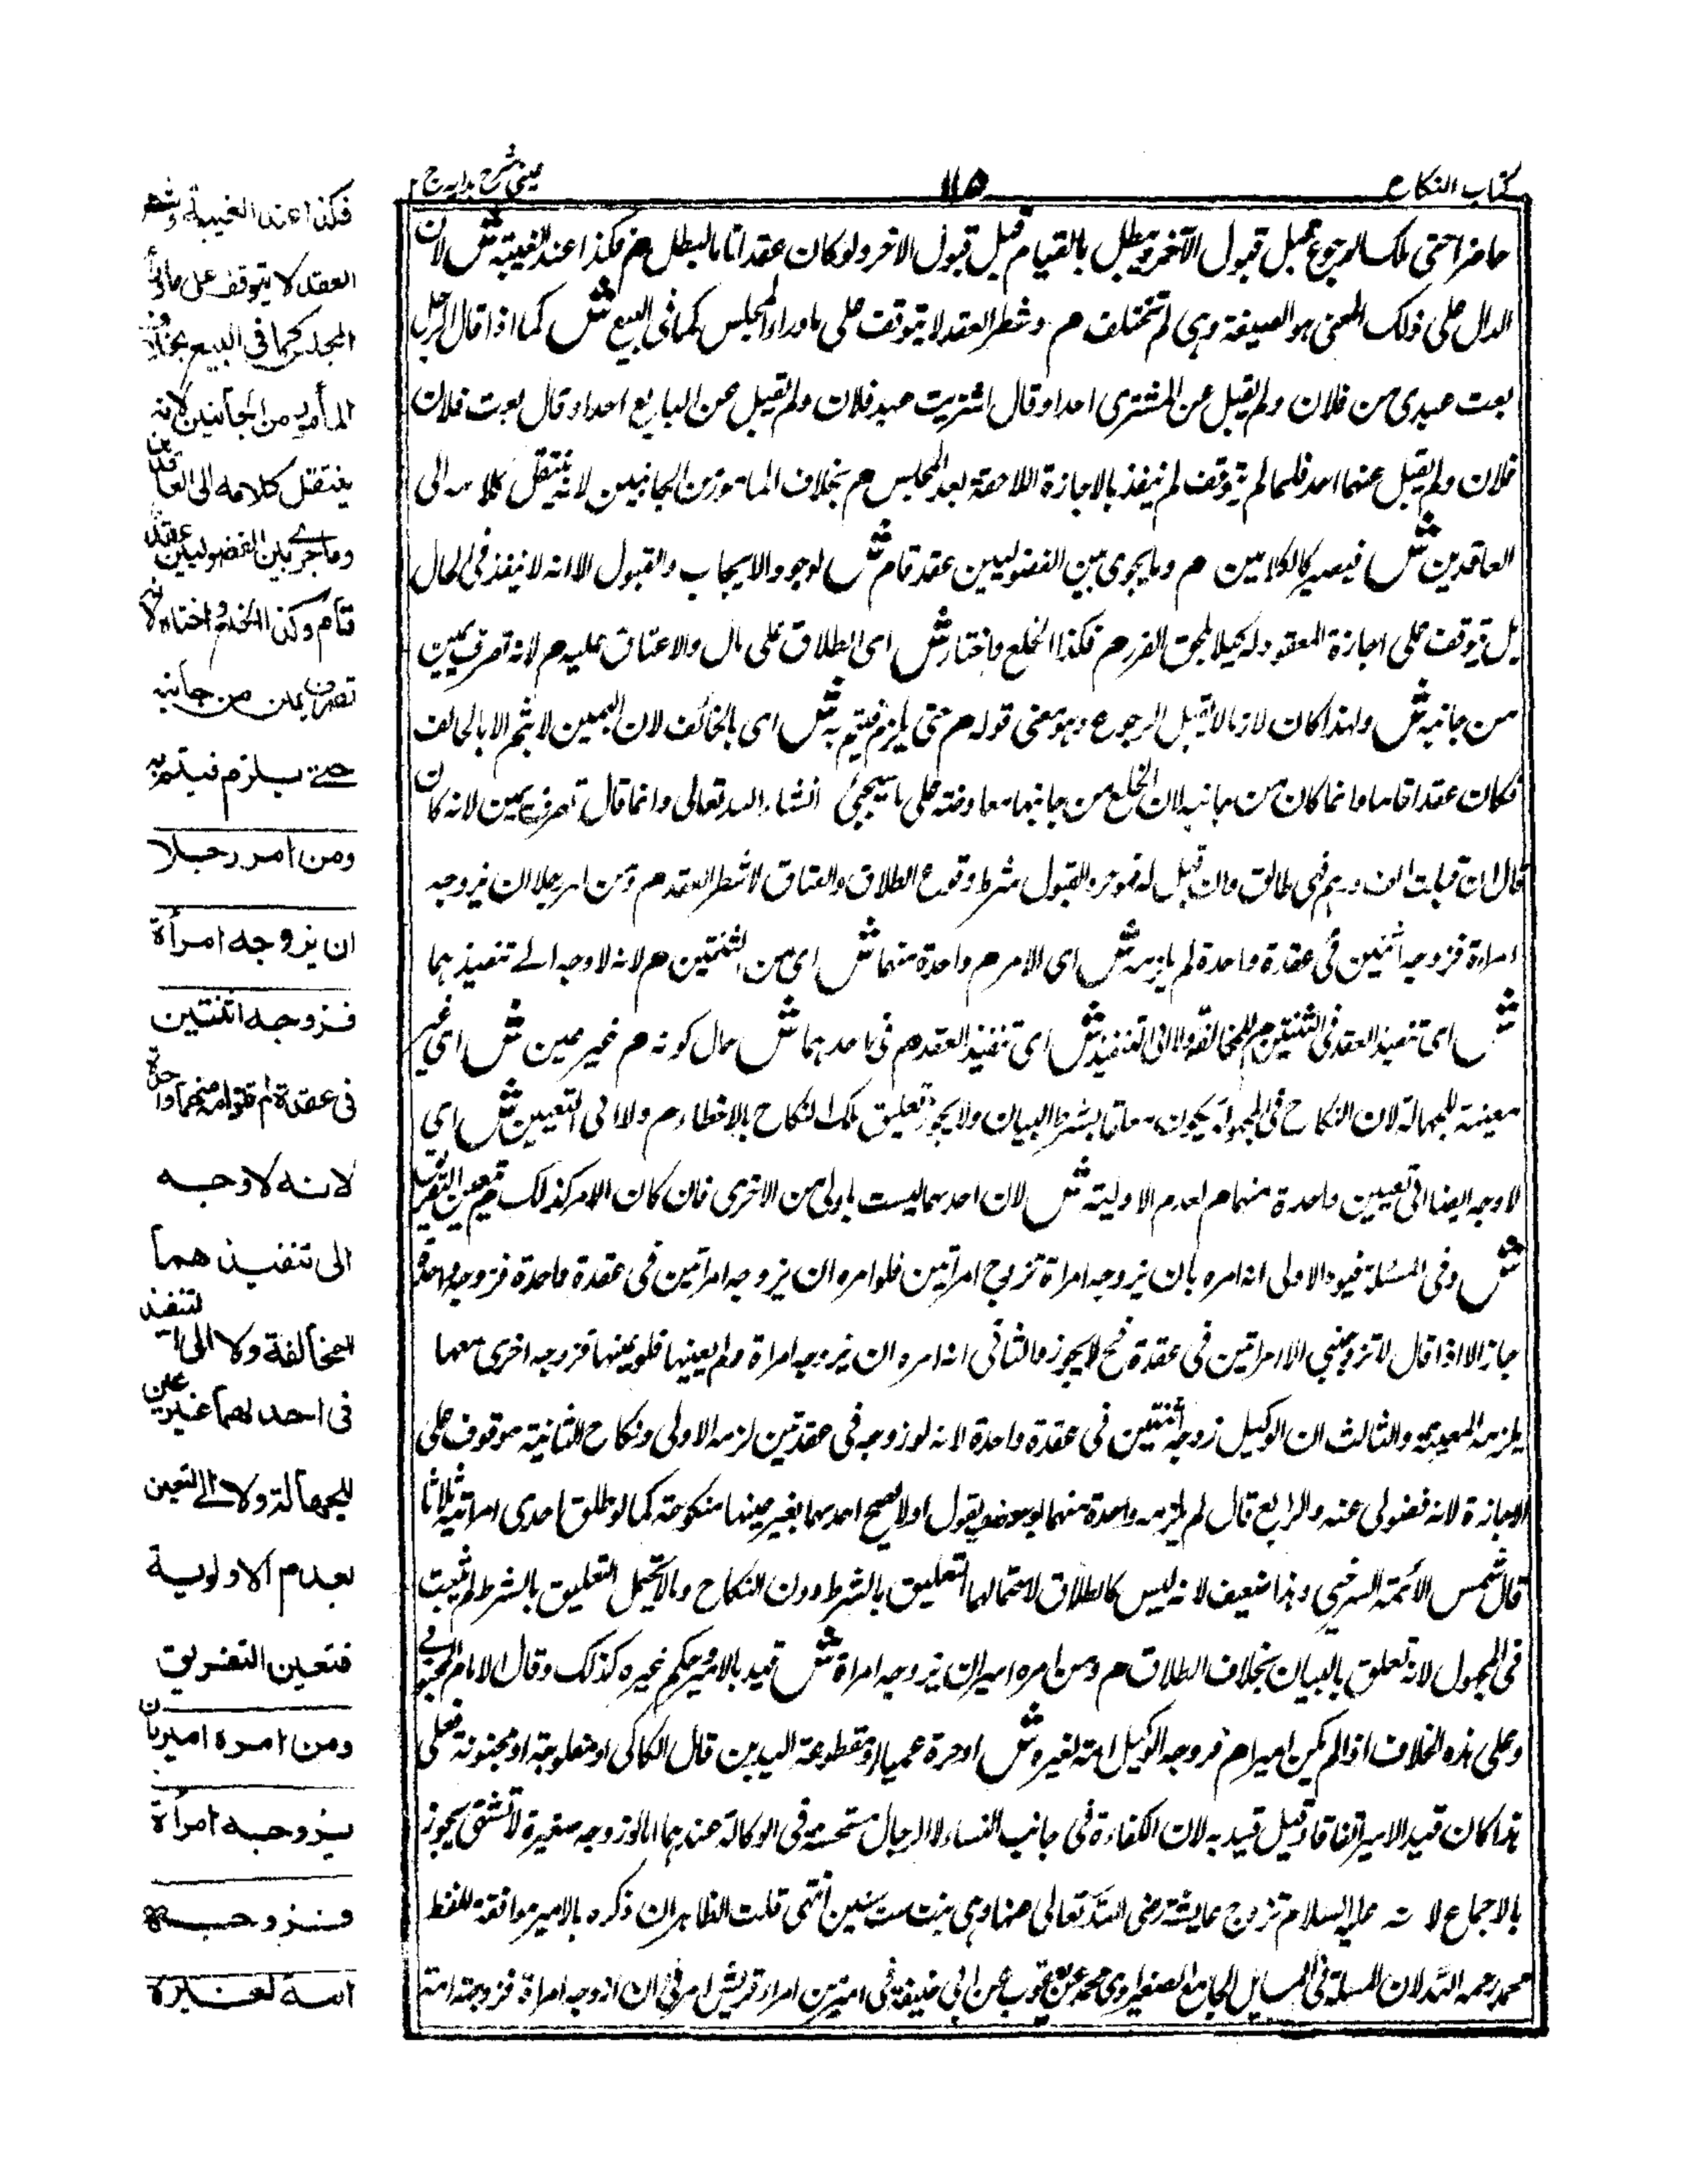 كتاب النكاح
١١٥
عينى شرح هدايه ج ٢
حاضرا حتى ملك الرجوع قبل قبول الآخر ويبطل بالقيام قبل قبول الاخر ولو كان عقدا تاما لما بطل م فكذا عند الغيبة ش لان
الدال على ذلك المعنى هو الصيغة وهى لم تختلف م وشطر العقد لا يتوقف على ما وراء المجلس كما فى البيع ش كما اذا قال الرجل
بعت عبدى من فلان ولم يقبل عن المشترى احد او قال اشتريت عبد فلان ولم يقبل عن البايع احد او قال بعت فلان
فلان ولم يقبل عنهما احد فلما لم يتوقف لم ينفذ بالاجازة اللاحقة بعد المجلس م بخلاف المامور من الجانبين لانه ينتقل كلامه الى
العاقدين ش فيصير كالكلامين م وما يجرى بين الفضوليين عقد تام ش لوجود الايجاب والقبول الا انه لا ينفذ فى الحال
بل يتوقف على اجازة المعقود له كيلا يلحق الضرر م فكذا الخلع واختاره ش اى الطلاق على مال والاعتاق عليه م لانه تصرف يمين
من جانبه ش ولهذا كان لازما لا يقبل الرجوع وهو معنى قوله م حتى يلزم فيتم به ش اى بالحالف لان اليمين لا يتم الا بالحالف
فكان عقدا تاما وانما كان من جانبه لان الخلع من جانبها معاوضة على ما سيجئ انشاء الله تعالى وانما قال تصرف يمين لانه كان
قال ان قبلت الف درهم فهى طالق وان قبل له فهو حر والقبول شرط وقوع الطلاق والعتاق لا شطر العقد م ومن امر رجلا ان يزوجه
امراءة فزوجه اثنتين فى عقدة واحدة لم يلزمه ش اى الامر م واحدة منهما ش اى من الثنتين م لانه لا وجه الے تنفيذهما
ش اى تنفيذ العقد فى الثنتين م للمخالفة ولا الى التنفيذ ش اى تنفيذ العقد م فى احدهما ش حال كونه م غير عين ش اى غير
معينة للجهالة لان النكاح فى المجهولة يكون معلقا بشرط البيان ولا يجوز تعليق ملك النكاح بالاخطار م ولا الى التعيين ش اى
لا وجه ايضا الى تعيين واحدة منهما م لعدم الاولية ش لان احدهما ليست باولى من الاخرى فان كان الامر كذلك م تعين التفريق
ش وفى المسئلة قيود الاولى انه امره بان يزوجه امراة تزوج امراتين فلو امره ان يزوجه امراتين فى عقدة واحدة فزوجه واحدة
جاز الا اذا قال لا تزوجنى الا امراتين فى عقدة فح لا يجوز والثانى انه امره ان يزوجه امراة ولم يعينها فلو عينها فزوجه اخرى معها
يلزمه المعينة والثالث ان الوكيل زوجه اثنتين فى عقدة واحدة لانه لو زوجه فى عقدتين لزمه الاولى ونكاح الثانية موقوف على
الاجازة لانه فضولى عنه والرابع قال لم يلزمه واحدة منهما ابو يوسف يقول اولا يصح احدهما بغير عينها منكوحته كما لو طلق احدى امراتيه ثلاثا
قال شمس الائمة السرخسى وهذا ضعيف لانه ليس كالطلاق لاحتمالها التعليق بالشرط دون النكاح وما لا يحتمل التعليق بالشرط لم يثبت
فى المجهول لانه تعلق بالبيان بخلاف الطلاق م ومن امره امير ان يزوجه امراة ش قيد بالامير وحكم غيره كذلك وقال الامام المحبوبى
وعلى هذه الخلاف اذا لم يكن اميرا م فزوجه الوكيل امة لغيره ش او حرة عمياء او مقطوعة اليدين قال الكاكى او مفلوجة او مجنونة فعلى
هذا كان قيد الامير اتفاقا وقيل قيد به لان الكفاءة فى جانب النساء لا الرجال مستحسنة فى الوكالة عندهما اما لو زوجه صغيرة لا تشتهى يجوز
بالاجماع لانه عليه السلام تزوج عايشة رضى الله تعالى عنها وهى بنت ست سنين انتهى قلت الظاهر ان ذكره بالامير موافقة للفظ
محمد رحمه الله لان المسالة فى المسايل الجامع الصغير روى محمد عن يعقوب عن ابى حنيفة فى امير من امراء قريش امرنى ان ازوجه امراة فزوجته امة
فكذا عند الغيبة وشطر
العقد لا يتوقف على ماوراء
المجلس كما فى البيع بخلاف
المأمور من الجانبين لانه
ينتقل كلامه الى العاقدين
وما جرے بين الفضوليين عقد
تام وكذا الخلع واختاه لانه
تصرف يمين من جانبه
حتے يلزم فيتم به
ومن امر رجلا
ان يزوجه امرأة
فزوجه اثنتين
فى عقدة لم تلزمه منهما واحدة
لانه لا وجه
الى تنفيذهما
للمخالفة ولا الى التنفيذ
فى احدهما غير عين
للجهالة ولا الے التعين
لعدم الاولوية
فتعين التفريق
ومن امره امير بان
يزوجه امرأة
فزوجه
امة لغيره